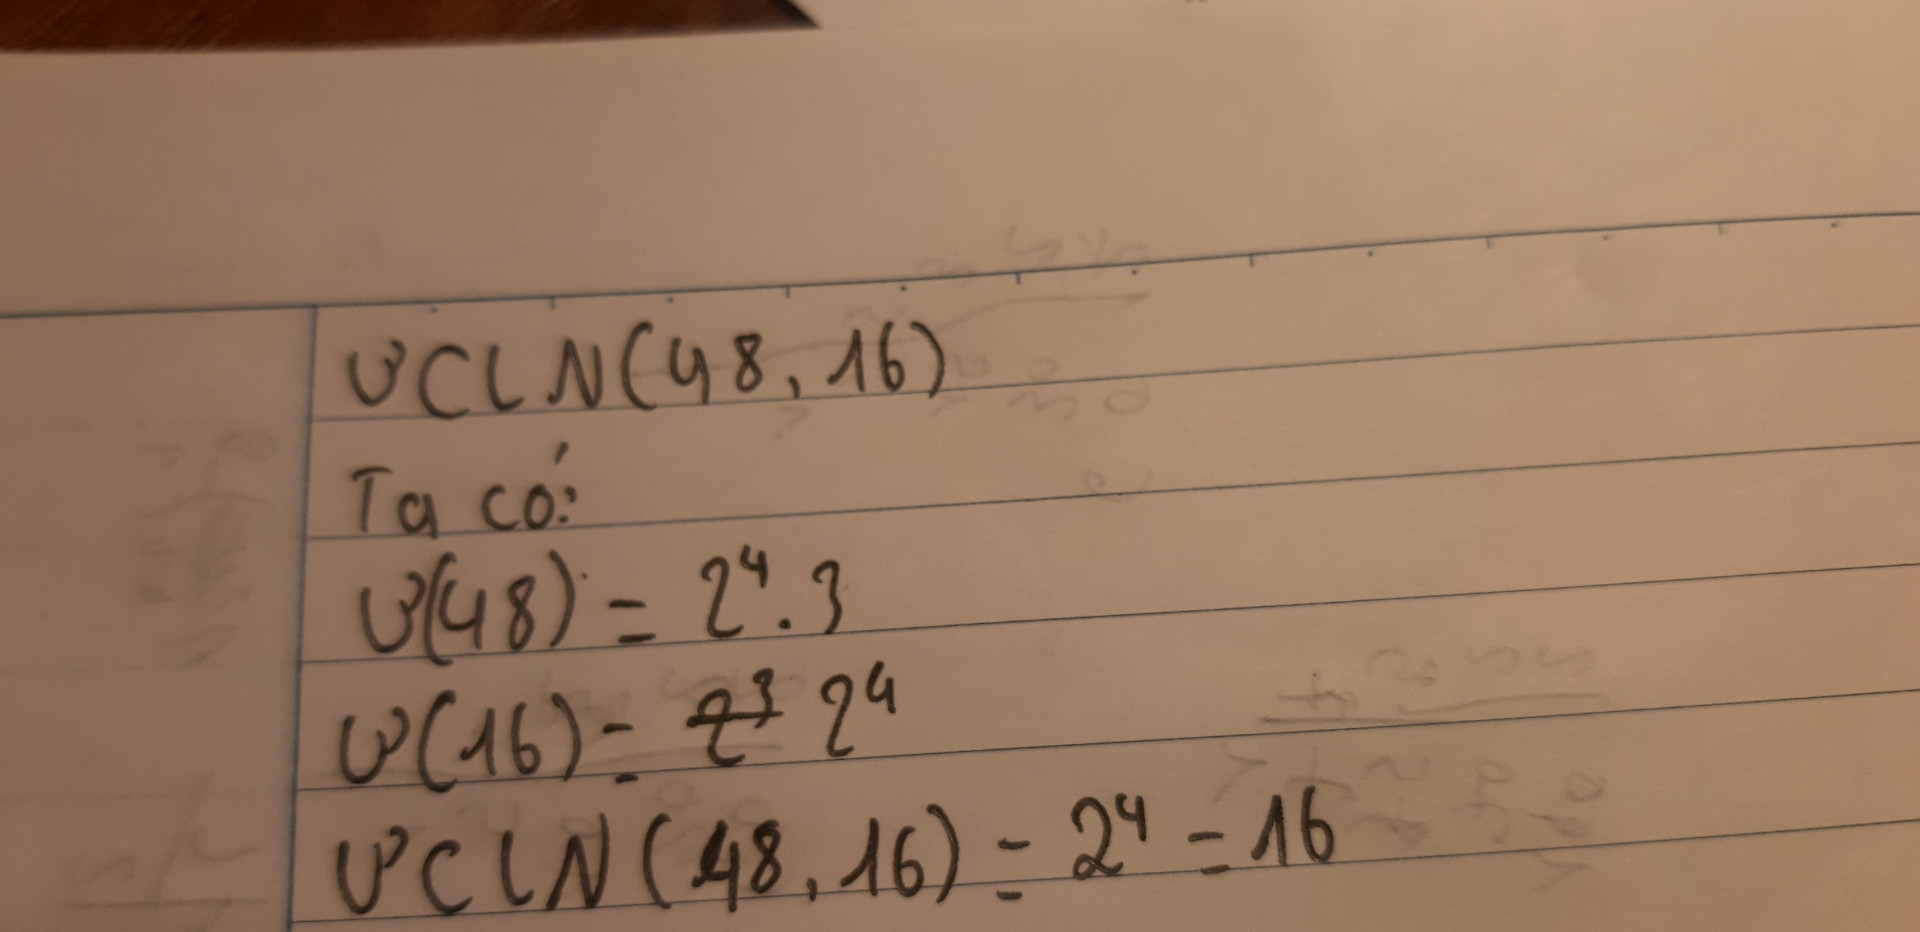 ƯCLN(48, 16)
Ta có:
Ư(48) = 2⁴ . 3
Ư(16) = 2³ 2⁴
ƯCLN(48, 16) = 2⁴ = 16